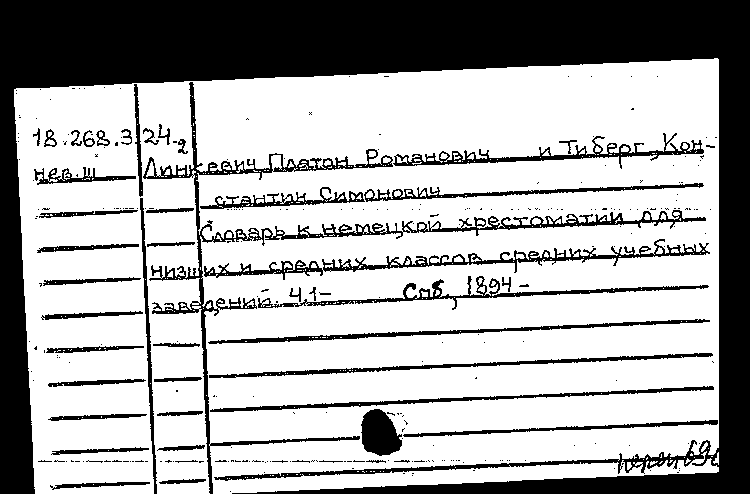 18.268.3.24-2
нев.ш Линкевич, Платон Романович и Тиберг, Кон-
стантин Симонович
Словарь к немецкой хрестоматии для
низших и средних классов средних учебных
заведений. Ч.1- Спб, 1894-